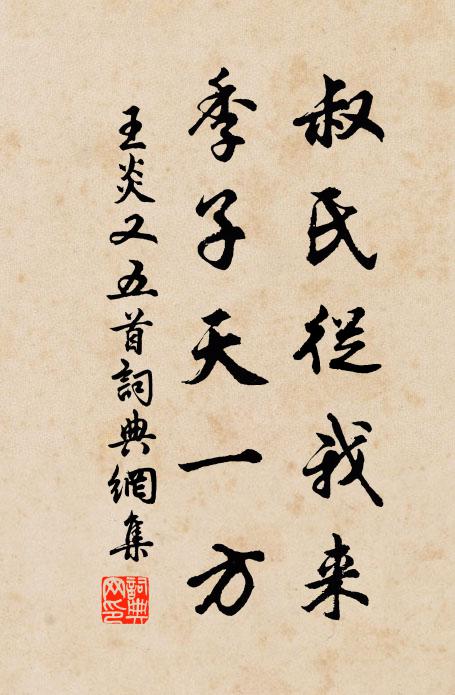 叔氏從我来
季子天一方
王炎又五首詞典網集
詞典網印